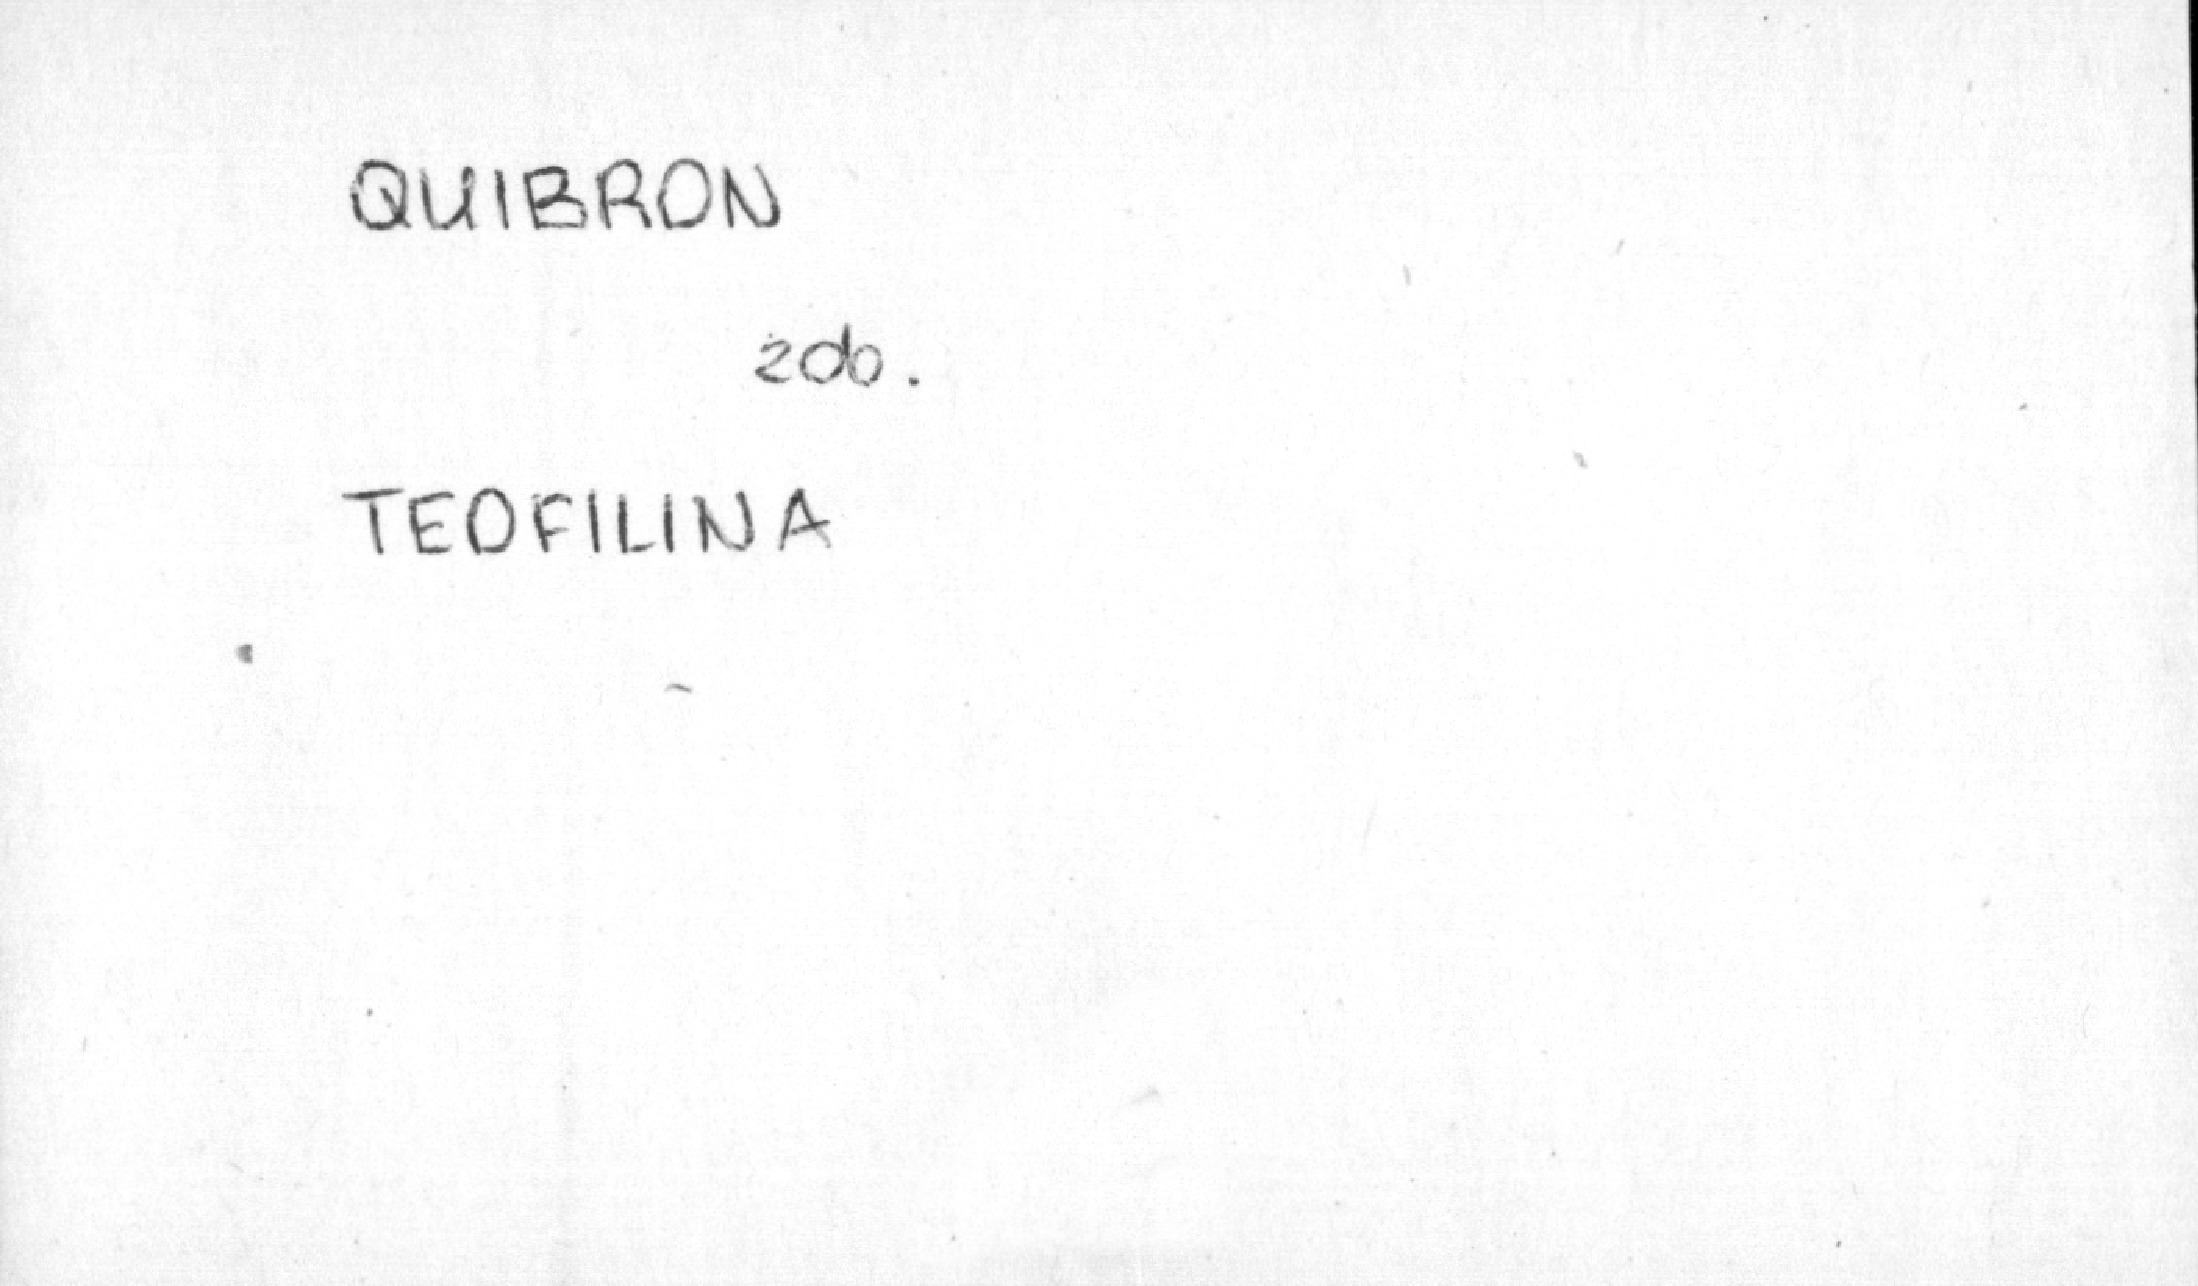 QUIBRON
zdo.
TEOFILINA